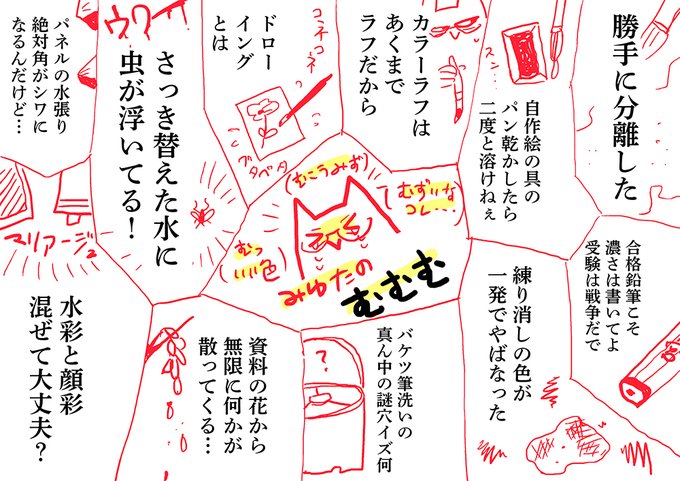 勝手に分離した
自作絵の具の
パン乾かしたら
二度と溶けねぇ
スン…
カラーラフは
あくまで
ラフだから
コネコネ
ドロー
イング
とは
グタベタ
ウワー
さっき替えた水に
虫が浮いてる!
パネルの水張り
絶対角がシワに
なるんだけど…
(むこうみず)
むずいな
コレ…
(むっ
いい色)
みゆたの
むむむ
合格鉛筆こそ
濃さは書いてよ
受験は戦争だで
練り消しの色が
一発でやばなった
バケツ筆洗いの
真ん中の謎穴イズ何
?
資料の花から
無限に何かが
散ってくる…
マリアージュ
水彩と顔彩
混ぜて大丈夫?